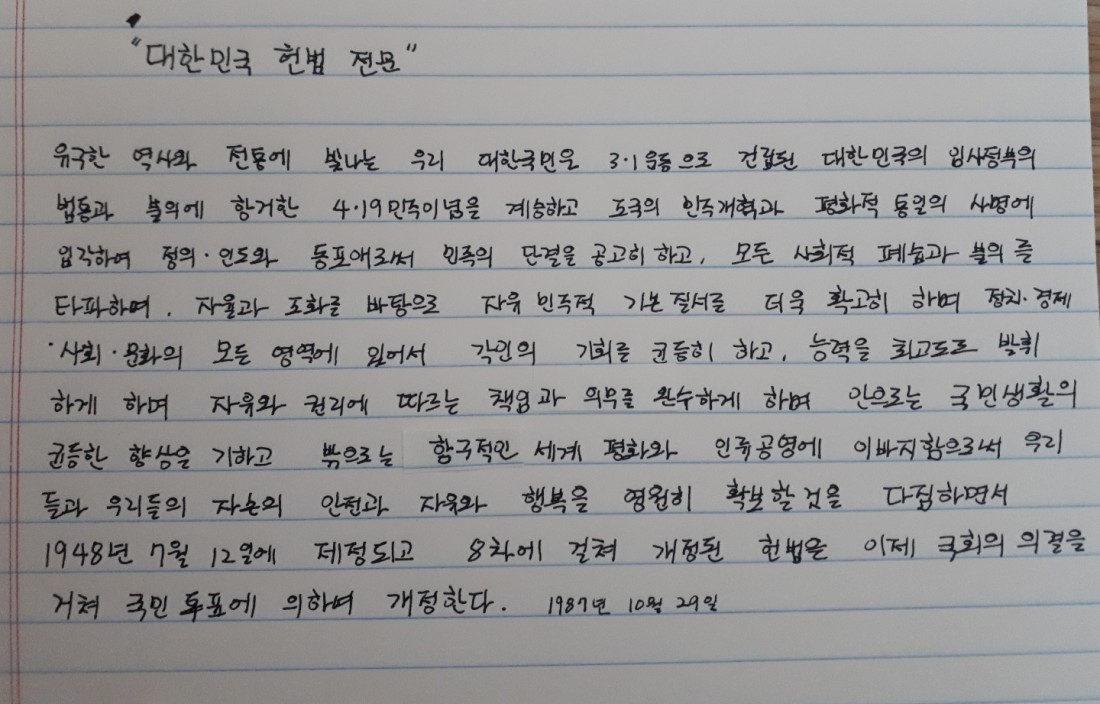 "대한민국 헌법 전문"
유구한 역사와 전통에 빛나는 우리 대한국민은 3·1운동으로 건립된 대한민국의 임시정부의
법통과 불의에 항거한 4·19민주이념을 계승하고 조국의 민주개혁과 평화적 통일의 사명에
입각하여 정의·인도와 동포애로써 민족의 단결을 공고히 하고, 모든 사회적 폐습과 불의를
타파하며, 자율과 조화를 바탕으로 자유 민주적 기본 질서를 더욱 확고히 하며 정치·경제
·사회·문화의 모든 영역에 있어서 각인의 기회를 균등히 하고, 능력을 최고도로 발휘
하게 하며 자유와 권리에 따르는 책임과 의무를 완수하게 하며 안으로는 국민생활의
균등한 향상을 기하고 밖으로는 항구적인 세계 평화와 인류공영에 이바지함으로써 우리
들과 우리들의 자손의 안전과 자유와 행복을 영원히 확보할 것을 다짐하면서
1948년 7월 12일에 제정되고 8차에 걸쳐 개정된 헌법을 이제 국회의 의결을
거쳐 국민 투표에 의하여 개정한다. 1987년 10월 29일